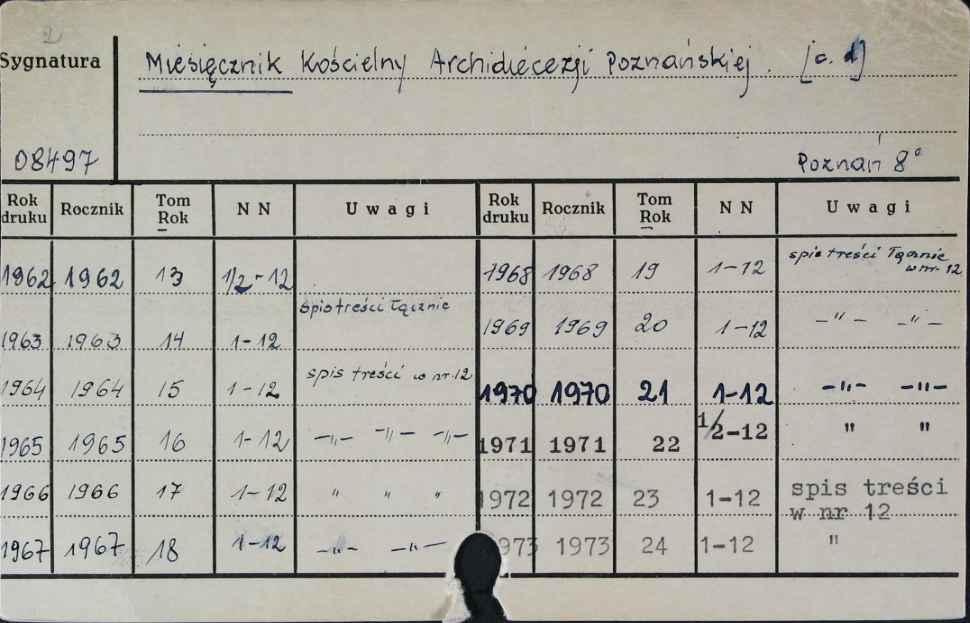 2
Sygnatura
Miesięcznik Kościelny Archidiecezji Poznańskiej. [c. d]
08497
Poznań 8°
Rok druku Rocznik Tom Rok NN Uwagi Rok druku Rocznik Tom Rok NN Uwagi
1962 1962 13 1/2-12
1963 1963 14 1-12 spis treści łącznie
1964 1964 15 1-12 spis treści w nr 12
1965 1965 16 1-12 -"- -"- -"-
1966 1966 17 1-12 " " "
1967 1967 18 1-12 -"- -"-
1968 1968 19 1-12 spis treści łącznie w nr 12
1969 1969 20 1-12 -"- -"-
1970 1970 21 1-12 -"- -"-
1971 1971 22 1/2-12 " "
1972 1972 23 1-12 spis treści
w nr 12
973 1973 24 1-12 "